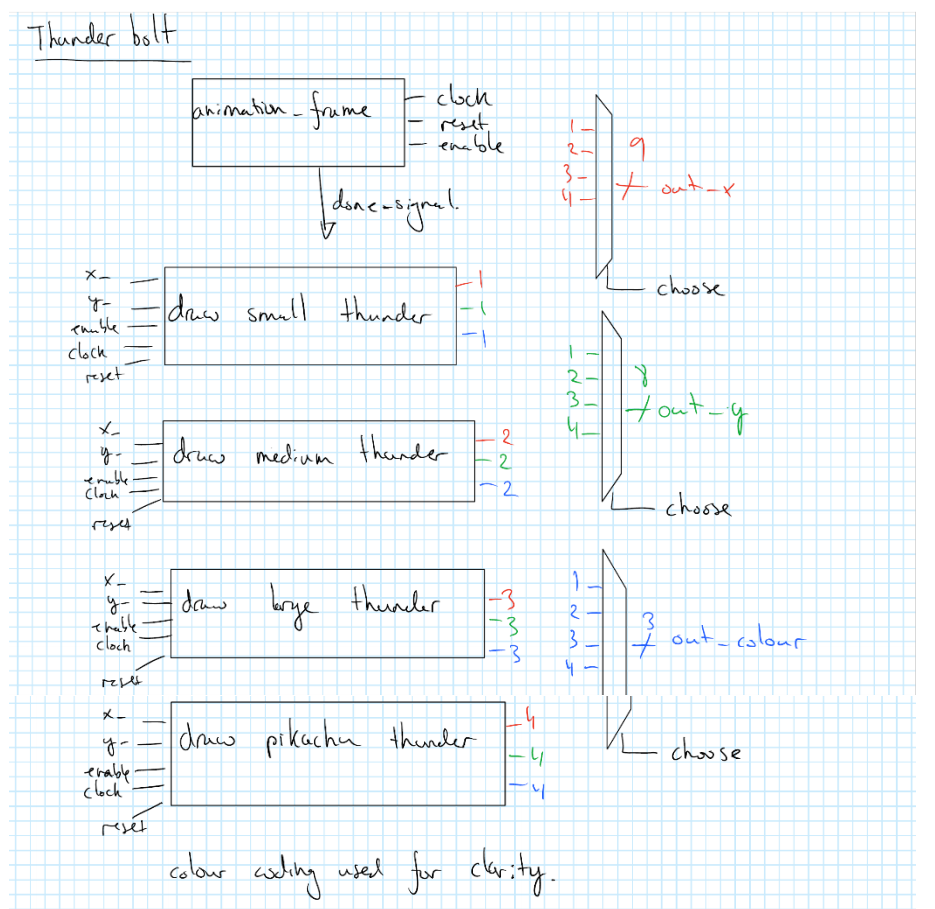 Thunder bolt
animation_frame
clock
reset
enable
done_signal.
x_
y_
enable
clock
reset
draw small thunder
1
1
1
x_
y_
enable
clock
reset
draw medium thunder
2
2
2
x_
y_
enable
clock
reset
draw large thunder
3
3
3
x_
y_
enable
clock
reset
draw pikachu thunder
4
4
4
1
2
3
4
9
out_x
choose
1
2
3
4
8
out_y
choose
1
2
3
4
3
out_colour
choose
colour coding used for clarity.